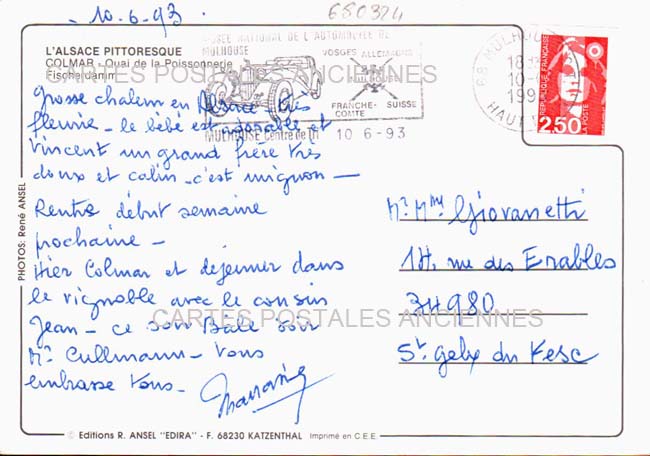 10.6.93
650324
L'ALSACE PITTORESQUE
COLMAR - Quai de la Poissonnerie
Fischerdamm
MUSEE NATIONAL DE L'AUTOMOBILE DE
MULHOUSE
VOSGES ALLEMAGNE
FRANCHE- SUISSE
COMTE
MULHOUSE Centre de Tri 10 6-93
68 MULHOUSE
18
10-
199
HAUT
REPUBLIQUE FRANÇAISE
LA POSTE
2,50
CARTES POSTALES ANCIENNES
Grosse chaleur en Alsace - très
fleurie - le bébé est adorable et
Vincent un grand frère très
doux et calin - c'est mignon -
Rentre début semaine
prochaine -
Hier Colmar et déjeuner dans
le vignoble avec le cousin
Jean - ce soir Bâle voir
Mr Cullmann - vous
embrasse tous -
Mr Mme Giovanetti
14, rue des Erables
34980
St Gely du Fesc
CARTES POSTALES ANCIENNES
PHOTOS: René ANSEL
© Editions R. ANSEL "EDIRA" - F. 68230 KATZENTHAL Imprimé en C.E.E.